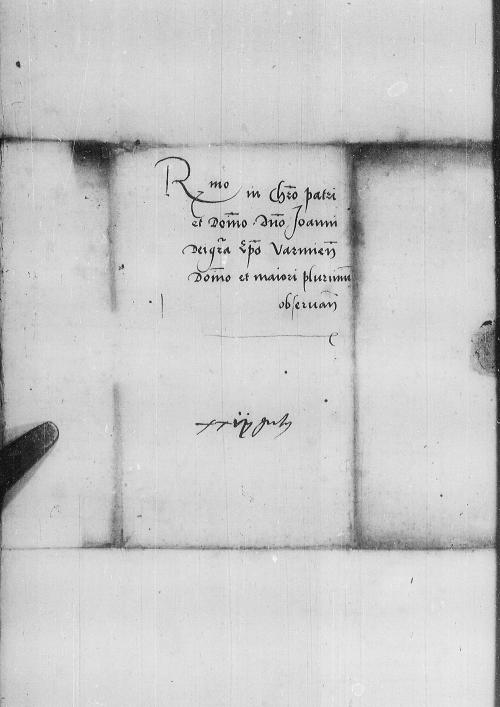 Rmo in Chro patri
et Domo Dno Joanni
Dei gra Epo Varmien
Domo et maiori plurimu
observan
xxiij July